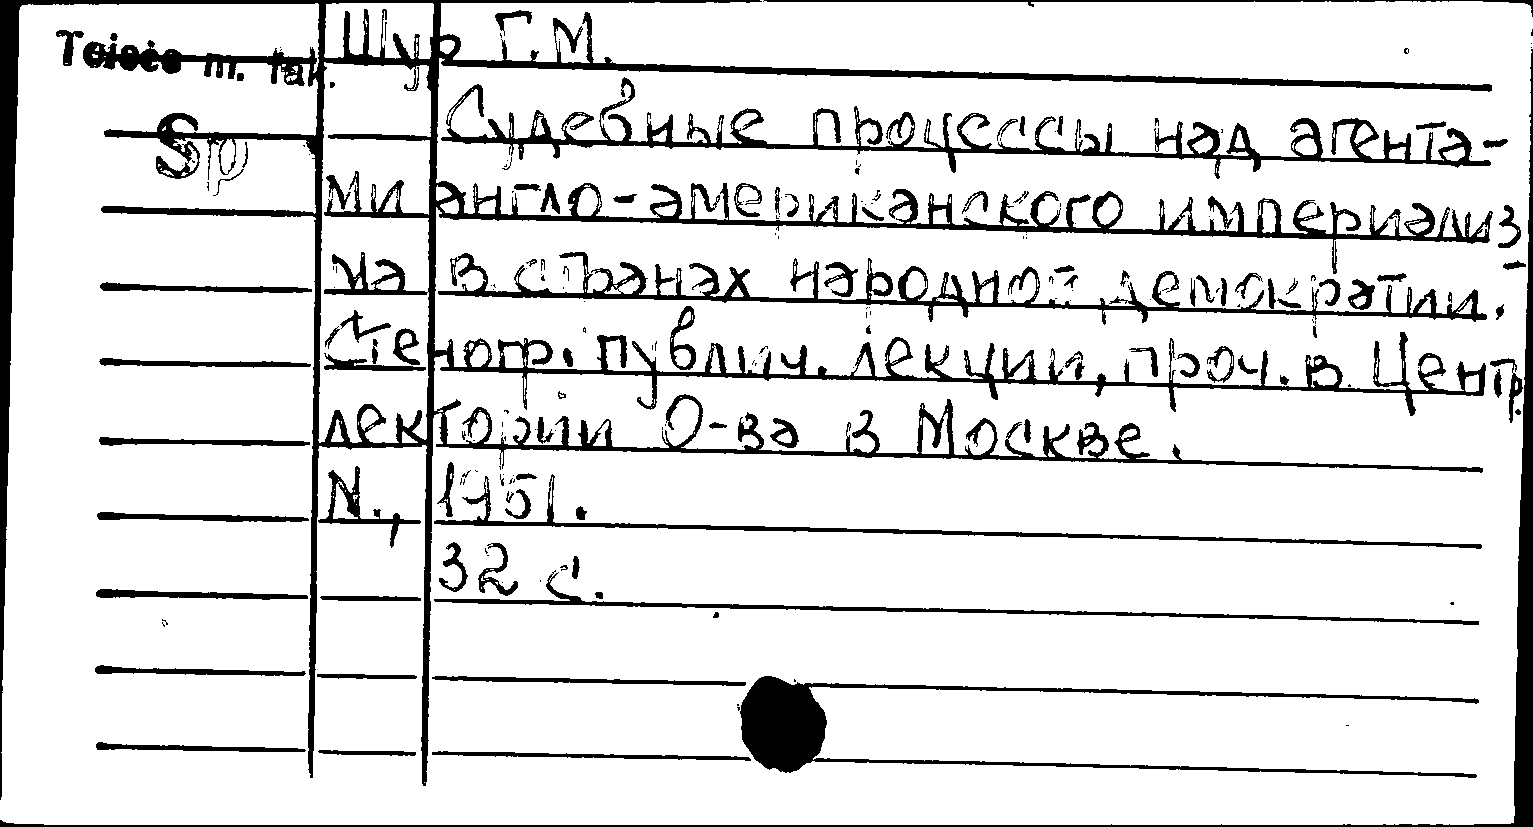 Шур Г.М.
Teisės m. fak.
Sp
Судебные процессы над агента-
ми англо-американского империализ-
ма в странах народной демократии.
Стеногр. публич. лекции, проч. в Центр.
лектории О-ва в Москве.
М., 1951.
32 с.